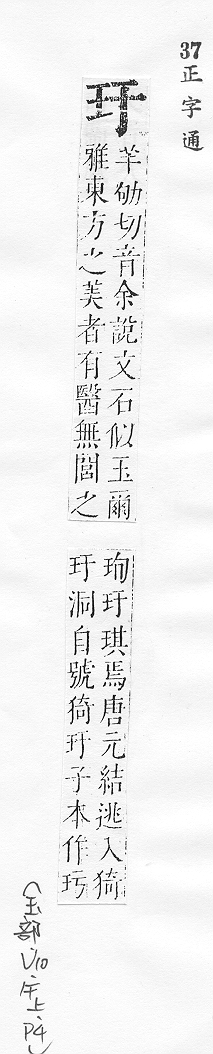 37 正字通
玗
羊劬切音余說文石似玉爾
雅東方之美者有醫無閭之
珣玗琪焉唐元結逃入猗
玗洞自號猗玗子本作
(玉部、V10、午上、P4)